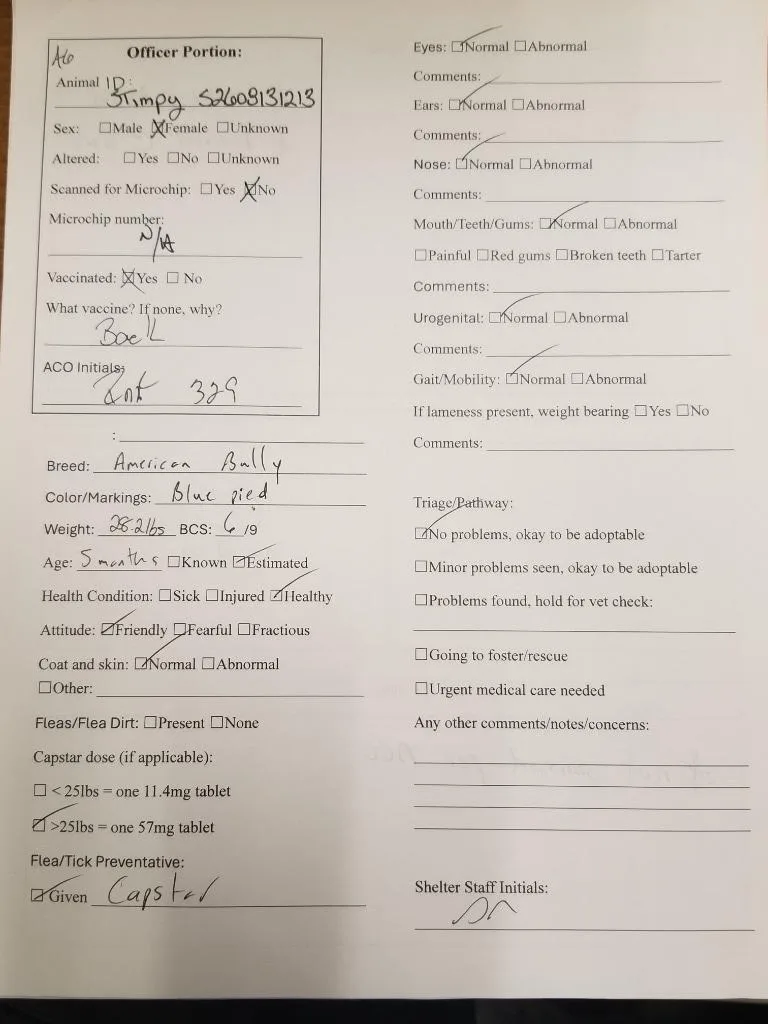 A6
Officer Portion:
Animal ID:
Stimpy S2608131213
Sex: ☐Male ☒Female ☐Unknown
Altered: ☐Yes ☐No ☐Unknown
Scanned for Microchip: ☐Yes ☒No
Microchip number:
N/A
Vaccinated: ☒Yes ☐ No
What vaccine? If none, why?
ACO Initials:
329
:
Breed: American Bully
Color/Markings: Blue pied
Weight: 28.2lbs BCS: 6 /9
Age: 5 months ☐Known ☑Estimated
Health Condition: ☐Sick ☐Injured ☑Healthy
Attitude: ☑Friendly ☑Fearful ☐Fractious
Coat and skin: ☑Normal ☐Abnormal
☐Other:
Fleas/Flea Dirt: ☐Present ☐None
Capstar dose (if applicable):
☐ < 25lbs = one 11.4mg tablet
☑ >25lbs = one 57mg tablet
Flea/Tick Preventative:
☑Given Capstar
Eyes: ☑Normal ☐Abnormal
Comments:
Ears: ☑Normal ☐Abnormal
Comments:
Nose: ☑Normal ☐Abnormal
Comments:
Mouth/Teeth/Gums: ☑Normal ☐Abnormal
☐Painful ☐Red gums ☐Broken teeth ☐Tarter
Comments:
Urogenital: ☑Normal ☐Abnormal
Comments:
Gait/Mobility: ☑Normal ☐Abnormal
If lameness present, weight bearing ☐Yes ☐No
Comments:
Triage/Pathway:
☑No problems, okay to be adoptable
☐Minor problems seen, okay to be adoptable
☐Problems found, hold for vet check:
☐Going to foster/rescue
☐Urgent medical care needed
Any other comments/notes/concerns:
Shelter Staff Initials: